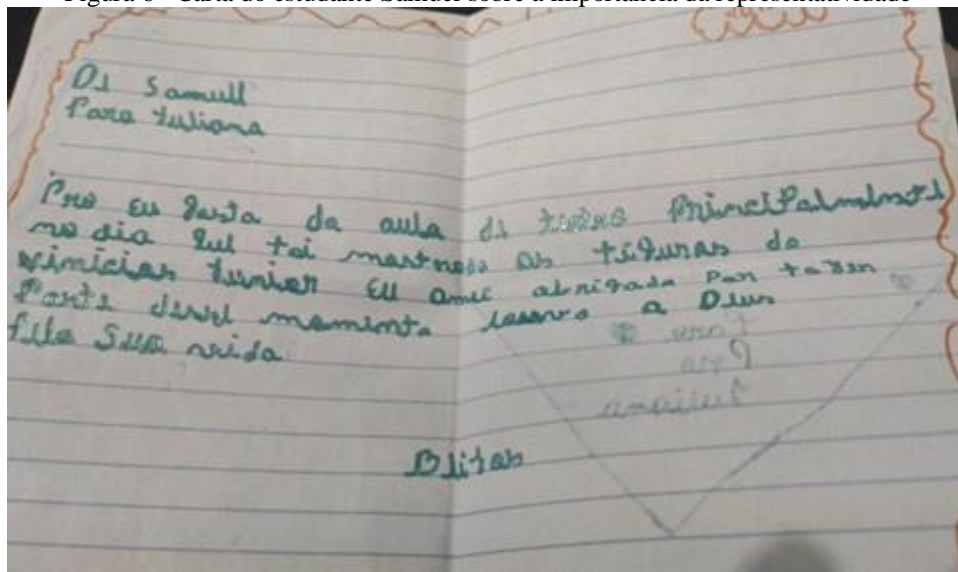 De Samuel
Para Juliana
Pro eu gosto da aula de principalmente
no dia que foi mostrado as figuras do
vinicias Junior eu amei obrigada por fazer
Parte desse momento louvo a Deus
Pela Sua vida
Pra
Juliana
Beijos